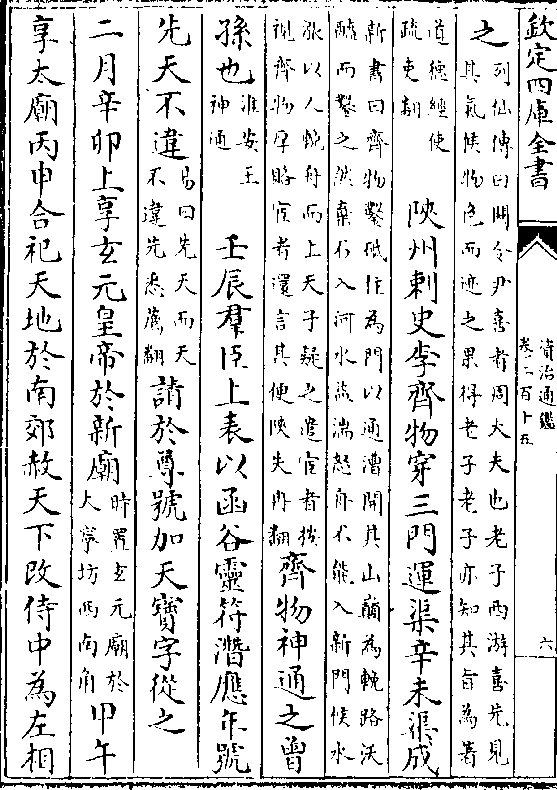 欽定四庫全書
資治通鑑
卷二百十五
六
之
列仙傳曰關令尹喜者周大夫也老子西游喜先見
其氣候物色而迹之果得老子老子亦知其旨為著
道徳經使
疏吏翻
陜州刺史李齊物穿三門運渠辛未渠成
新書曰齊物鑿砥柱為門以通漕開其山巔為輓路沃
醯而鑿之然棄石入河水益湍怒舟不能入新門候水
漲以人輓舟而上天子疑之遣宦者按
視齊物厚賂宦者還言其便陜失冉翻
齊物神通之曾
孫也
淮安王
神通
壬辰羣臣上表以函谷靈符潛應年號
先天不違
易曰先天而天
不違先悉薦翻
請於尊號加天寶字從之
二月辛卯上享玄元皇帝於新廟
時置玄元廟於
大寧坊西南角
甲午
享太廟丙申合祀天地於南郊赦天下改侍中為左相